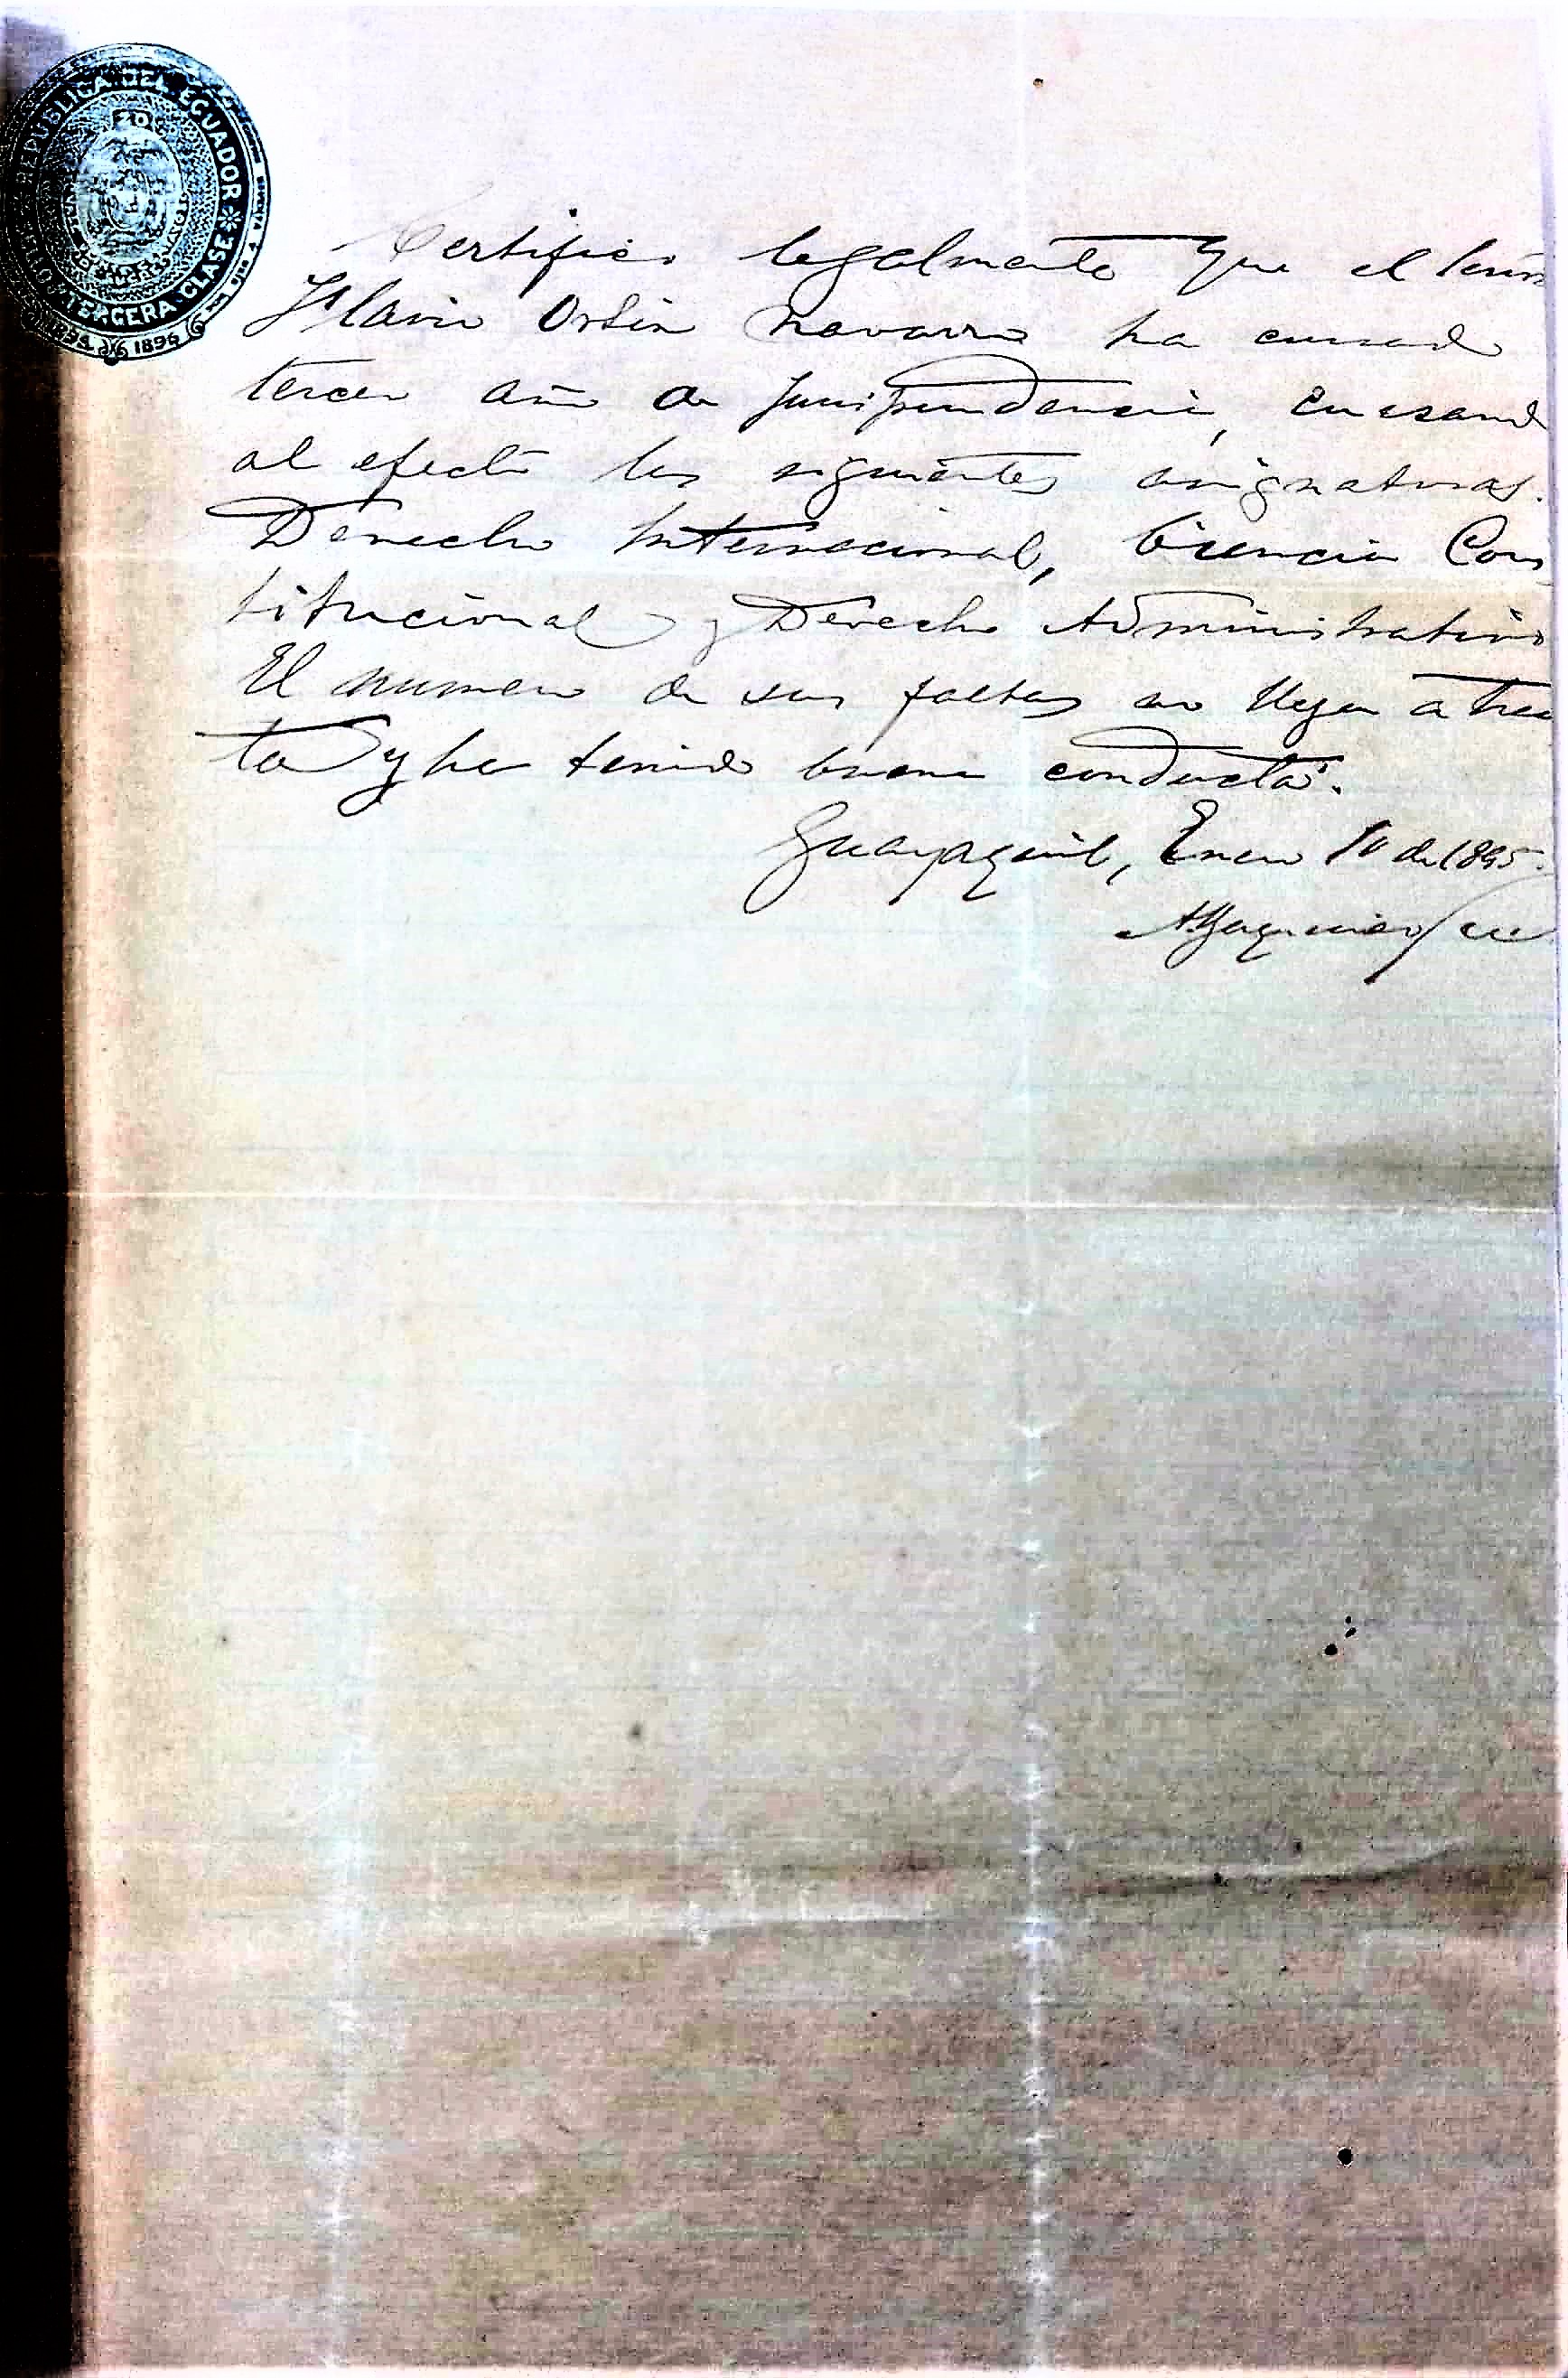 REPUBLICA DEL ECUADOR
TERCERA CLASE
1896
Certifico legalmente que el
Flavio Ortiz Navarro ha cursado
tercer año de Jurisprudencia,
al efecto las siguientes asignaturas.
Derecho Internacional, Ciencia Cons
titucional y Derecho Administrativo
El numero de sus faltas no llega a trein
ta y ha tenido buena conducta.
Guayaquil, Enero 10 de 1895.